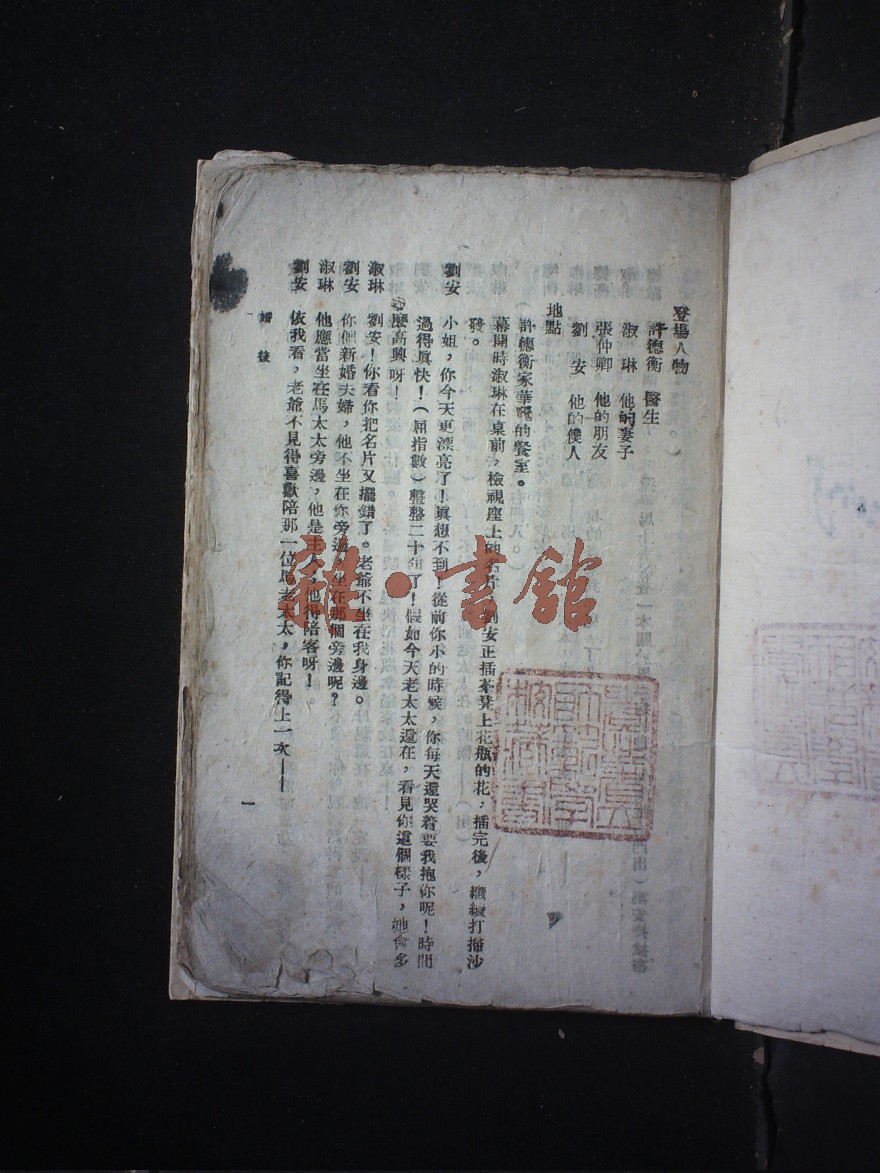 登場人物
許德衡　醫生
淑　琳　他的妻子
張仲卿　他的朋友
劉　安　他的僕人
地點
（許德衡家華麗的餐室。
幕開時淑琳在桌前，檢視座上的名片，劉安正插茶凳上花瓶的花，插完後，繼續打掃沙
發。
劉安　小姐，你今天更漂亮了！眞想不到！從前你小的時候，你每天還哭着要我抱你呢！時間
過得眞快！（屈指數）整整二十年了！假如今天老太太還在，看見你這個樣子，她會多
麼高興呀！
淑琳　劉安！你看你把名片又擺錯了。老爺不坐在我身邊。
劉安　你們新婚夫婦，他不坐在你旁邊，坐在那個旁邊呢？
淑琳　他應當坐在馬太太旁邊，他是主人，他得陪客呀！
劉安　依我看，老爺不見得喜歡陪那一位馬老太太，你記得上一次——
婚後
一
雜·書館